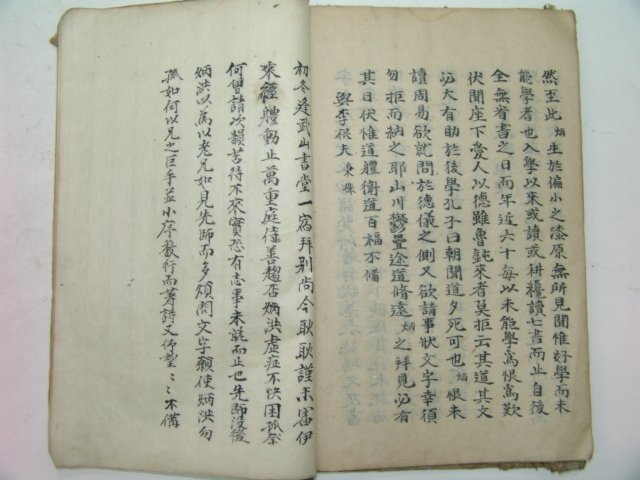 然至此 炳生於偏小之漆原無所見聞惟好學而未
能學者也入學以來或讀或耕纔讀七書而止自後
全無看書之日而年近六十每以未能學爲恨爲歎
伏聞座下愛人以德雖魯鈍來者莫拒云其道其文
必大有助於後學孔子曰朝聞道夕死可也 炳 恨未
讀周易欲就問於德儀之側又欲請事狀文字幸須
勿拒而納之耶山川鬱疊途道脩遠 炳 之拜見必有
其日伏惟道體衛道百福不備
與李根夫 秉株
初冬逢武山書堂一宿拜別尚今耿耿謹未審伊
來經體動止萬重庭侍善趨否炳洪虛症不快困孤奈
何曾請次韻苦待不來實恐有志事未就而止也先師沒後
炳洪以爲以老兄如見先師而多煩問文字願使炳洪勿
孤如何以兄之巨手並小序數行而著詩又仰望〻〻不備